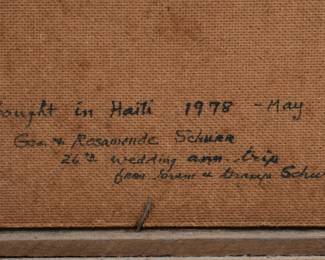 Bought in Haiti 1978 - May
Geo. & Rosamonde Schurr
26th wedding ann. trip
from Gram & Gramps Schu